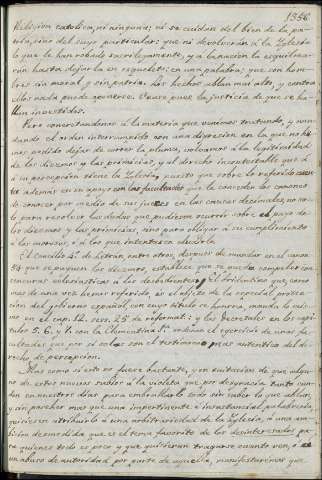 1356
Religion catolica, ni ninguna: ni se cuidan del bien de la pa-
tria, sino del suyo particular: que ni devolverán á la Iglesia
lo que le han robado sacrilegamente, y á la nacion la esquilma-
rán hasta dejarla en esqueleto: en una palabra; que son hom-
bres sin moral y sin patria. Los hechos hablan muy alto, y contra
ellos nada puede oponerse. Cesare pues la justicia de que se ha-
llan investidos.
Pero concretandonos á la materia que venimos tratando, y anu-
dando el orden interrumpido con una digresion en la que no he-
mos podido dejar de correr la pluma, volvamos á la legitimidad
de los diezmos y las primicias, y al derecho incontestable que á
su percepcion tiene la Iglesia, puesto que sobre lo referido cuen-
ta ademas en su apoyo con las facultades que le conceden los canones
de conocer por medio de sus jueces en las causas decimales, no so-
lo para resolver las dudas que pudiesen ocurrir sobre el pago de
los diezmos y las primicias, sino para obligar á su cumplimiento
á los morosos, ó á los que intentasen eludirla.
El Concilio de Letrán, entre otros, despues de mandar en el canon
54 que se paguen los diezmos, establece que se pueda compeler con
censuras eclesiasticas á los desobedientes; el tridentino que, como
mas de una vez hemos referido, es el objeto de la especial protec-
cion del gobierno español, con cuyo titulo se honra, manda lo mis-
mo en el cap. 12. sess. 25 de reformat.: y las decretales en los capi-
tulos 5. 6. y 7. con la Clementina 1ª ordenan el ejercicio de unas fa-
cultades que por si solas son el testimonio mas autentico del de-
recho de percepcion.
Mas como si esto no fuera bastante, y en evitacion de que algu-
no de estos muchos sabios á la violeta que por desgracia tanto cun-
den en nuestros dias para embrollarlo todo sin saber lo que hablan,
y sin parchar mas que una impertinente é insustancial palabreria,
quisiesen atribuirlo á una arbitrariedad de la Iglesia, á una am-
bicion desmedida que es el tema favorito de los desinteresados pa-
ra quienes todo es poco y que quisieran tragarse cuanto ven, ó á
un abuso de autoridad por parte de aquella, manifestaremos que